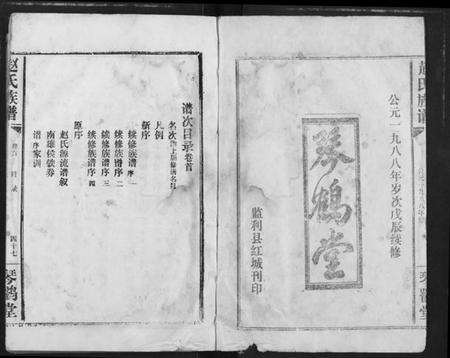 赵氏族谱
公元一九八八年岁次戊辰续修
琴鹤堂
监利县红城刊印
琴鹤堂
谱次目录卷首
名次
凡例
新序
续修族谱序一
续修族谱序二
续修族谱序三
续修族谱序四
原序
赵氏源流谱叙
南雄侯
家训
赵氏族谱
目录
四十七
琴鹤堂